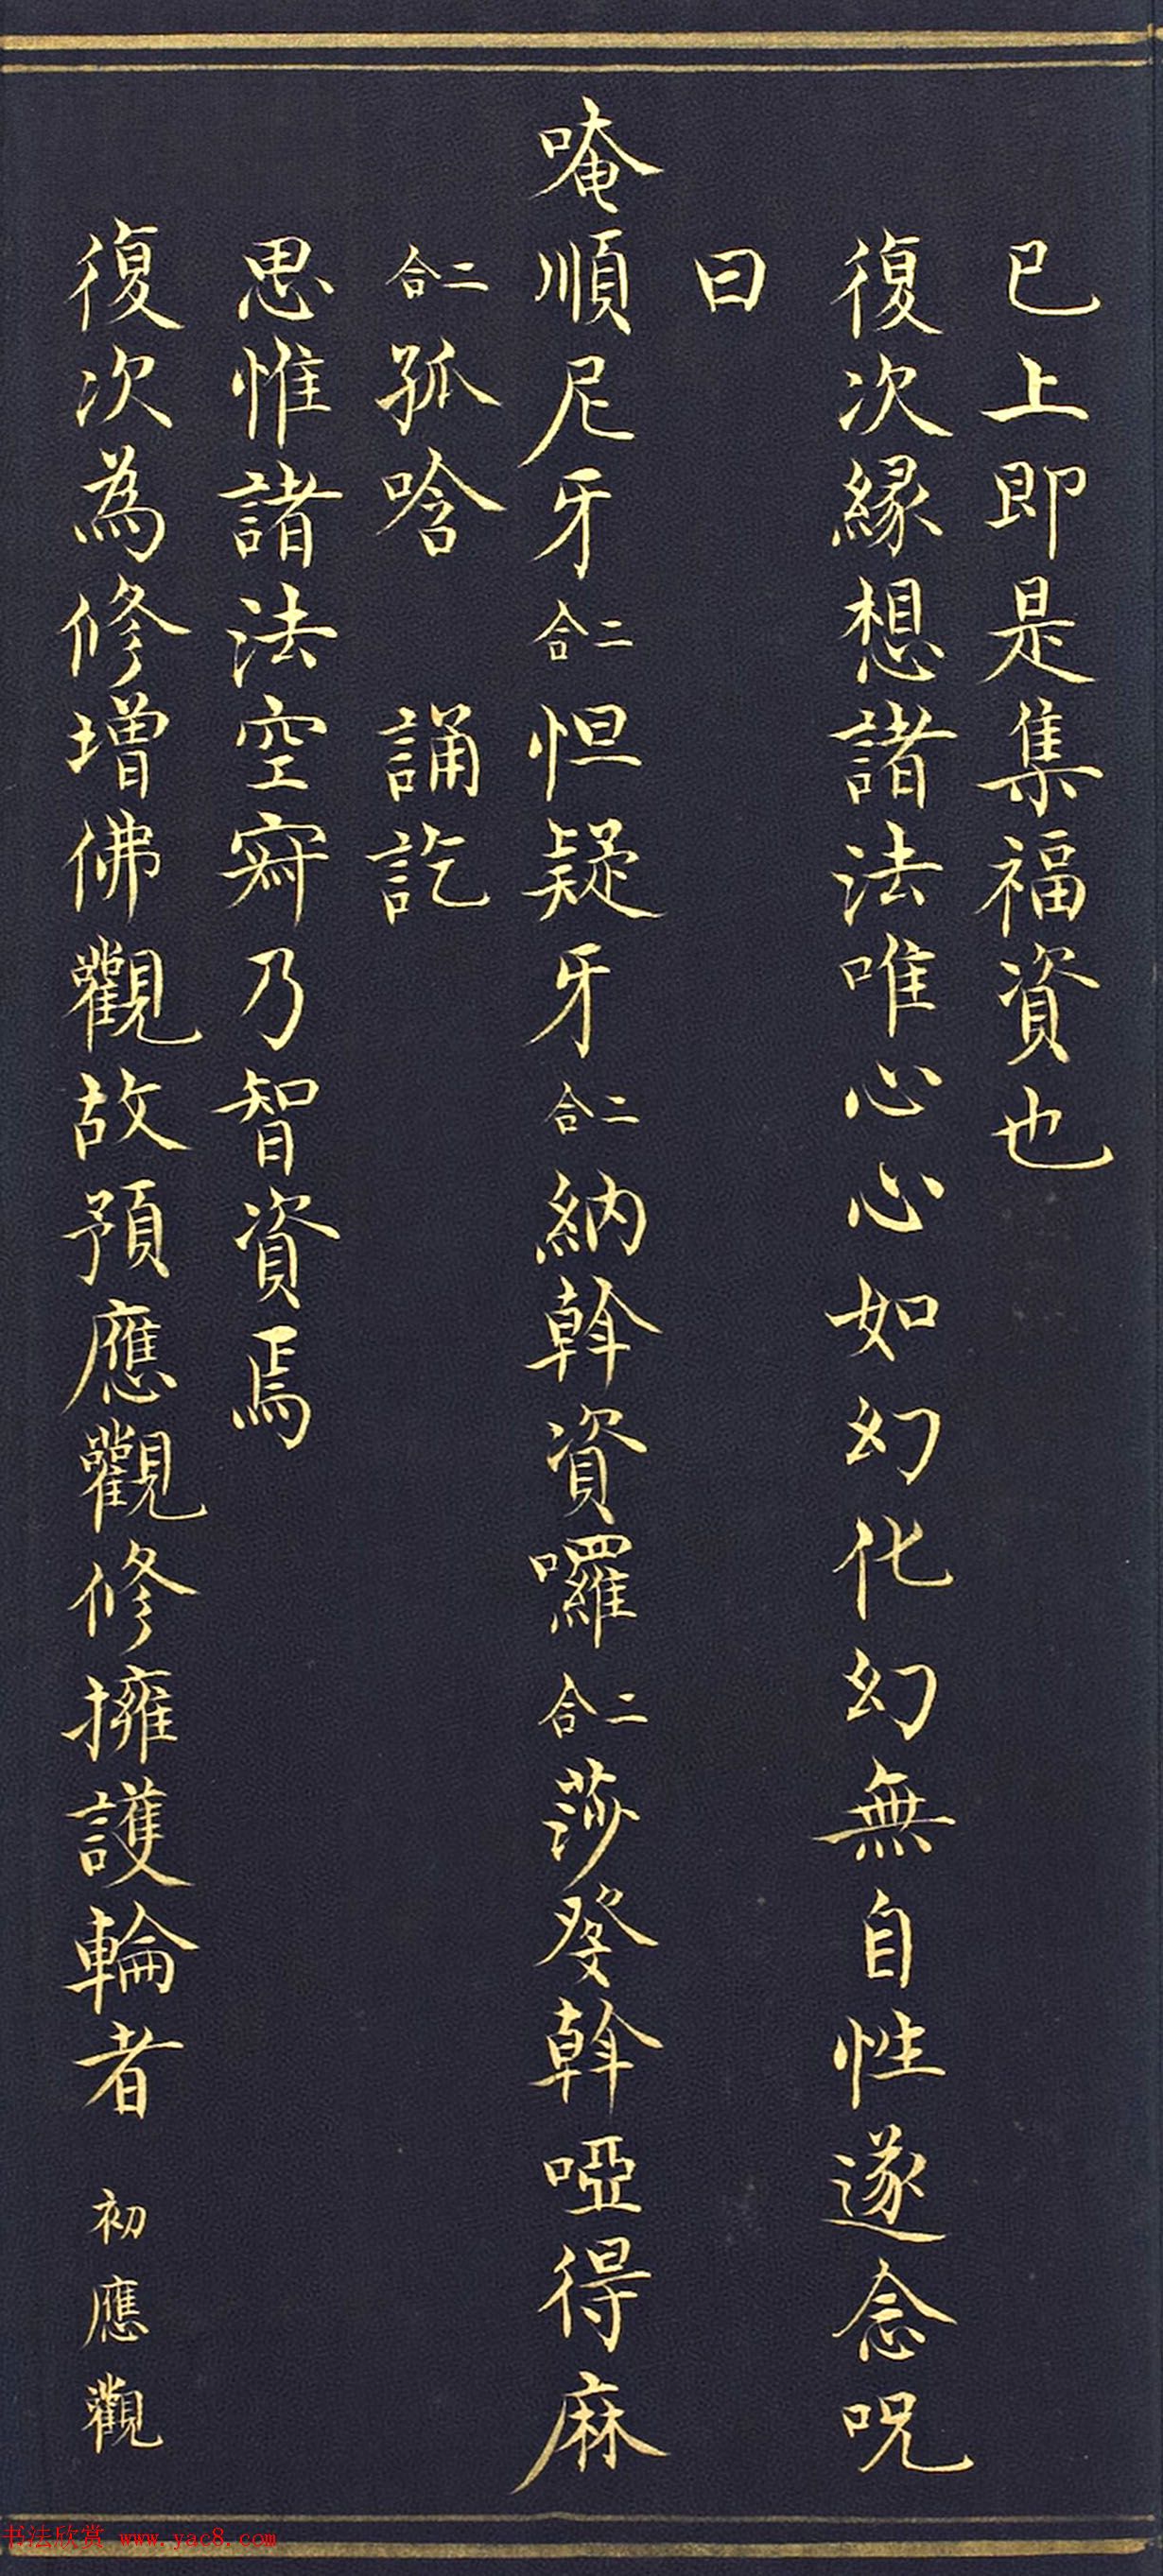 已上即是集福資也
復次緣想諸法唯心心如幻化幻無自性遂念呪
曰
唵順尼牙二合怛疑牙二合納斡資囉二合莎癹斡啞得麻
二合孤唅　誦訖
思惟諸法空寂乃智資焉
復次為修增佛觀故預應觀修擁護輪者　初應觀
书法欣赏 www.yac8.com